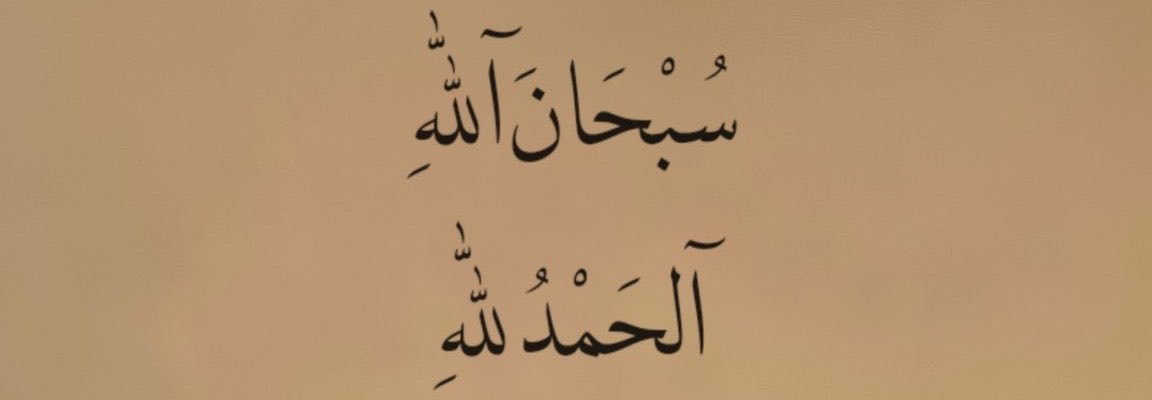 سُبْحَانَ آللّٰهِ
آلحَمْدُ لِلّٰهِ